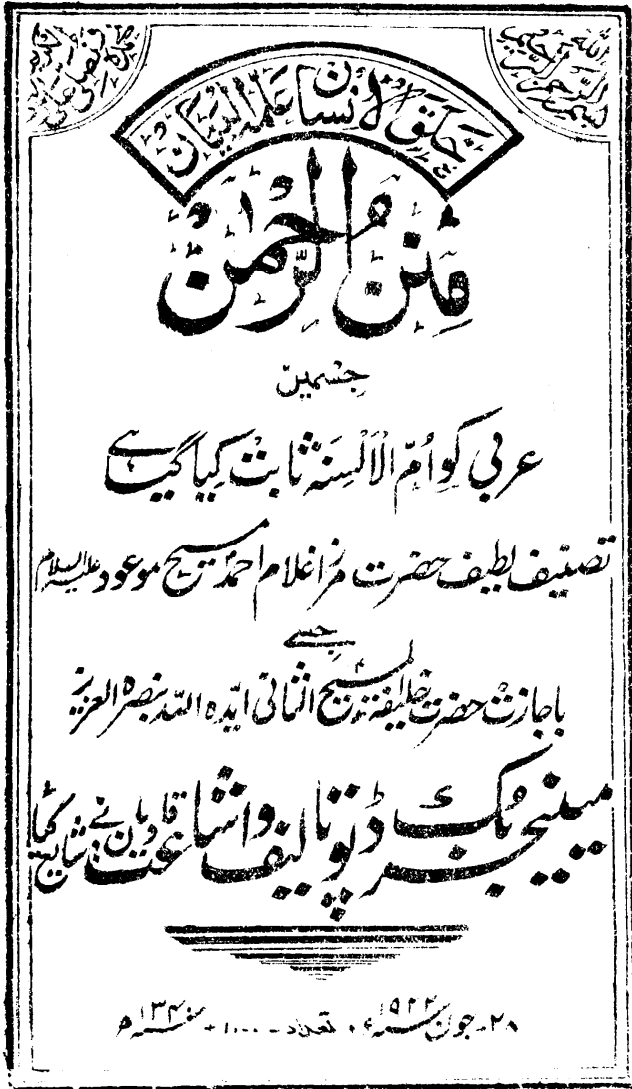 بسم الله الرحمن الرحيم
خلق الانسان علمه البيان
مِنَنُ الرَّحمٰن
جسمیں
عربی کو اُمّ الْاَلْسِنَہ ثابت کیا گیا ہے
تصنیف لطیف حضرت مرزا غلام احمد مسیح موعود علیہ السلام
جسے
باجازت حضرت خلیفۃ المسیح الثانی ایدہ اللہ بنصرہ العزیز
مینیجر بک ڈپو تالیف و اشاعت قادیان نے شایع کیا
۲۸- جون ۱۹۲۲ء تعداد - ۱۰۰۰ - ۱۳۴۰ھ